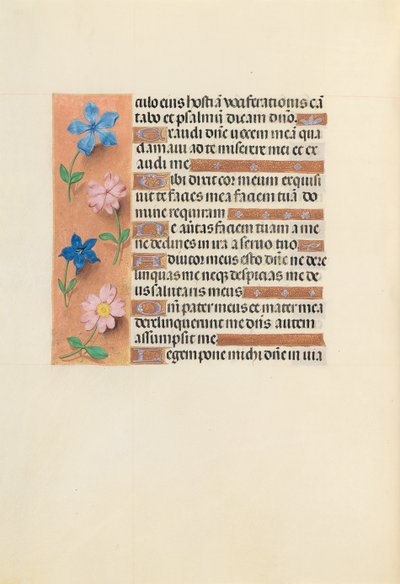 culo eius hostiā vociferationis cā
tabo et psalmū dicam dn̄o.
Exaudi dn̄e vocem meā qua
clamavi ad te miserere mei et ex
audi me
Tibi dixit cor meum exquisi
uit te facies mea faciem tuā do
mine requiram
Ne auertas faciem tuam a me
ne declines in ira a seruo tuo
Adiutor meus esto dn̄e ne dere
linquas me neq despicias me de
us salutaris meus
Qm̄ pater meus et mater mea
dereliquerunt me dn̄s autem
assumpsit me
Legem pone michi dn̄e in uia